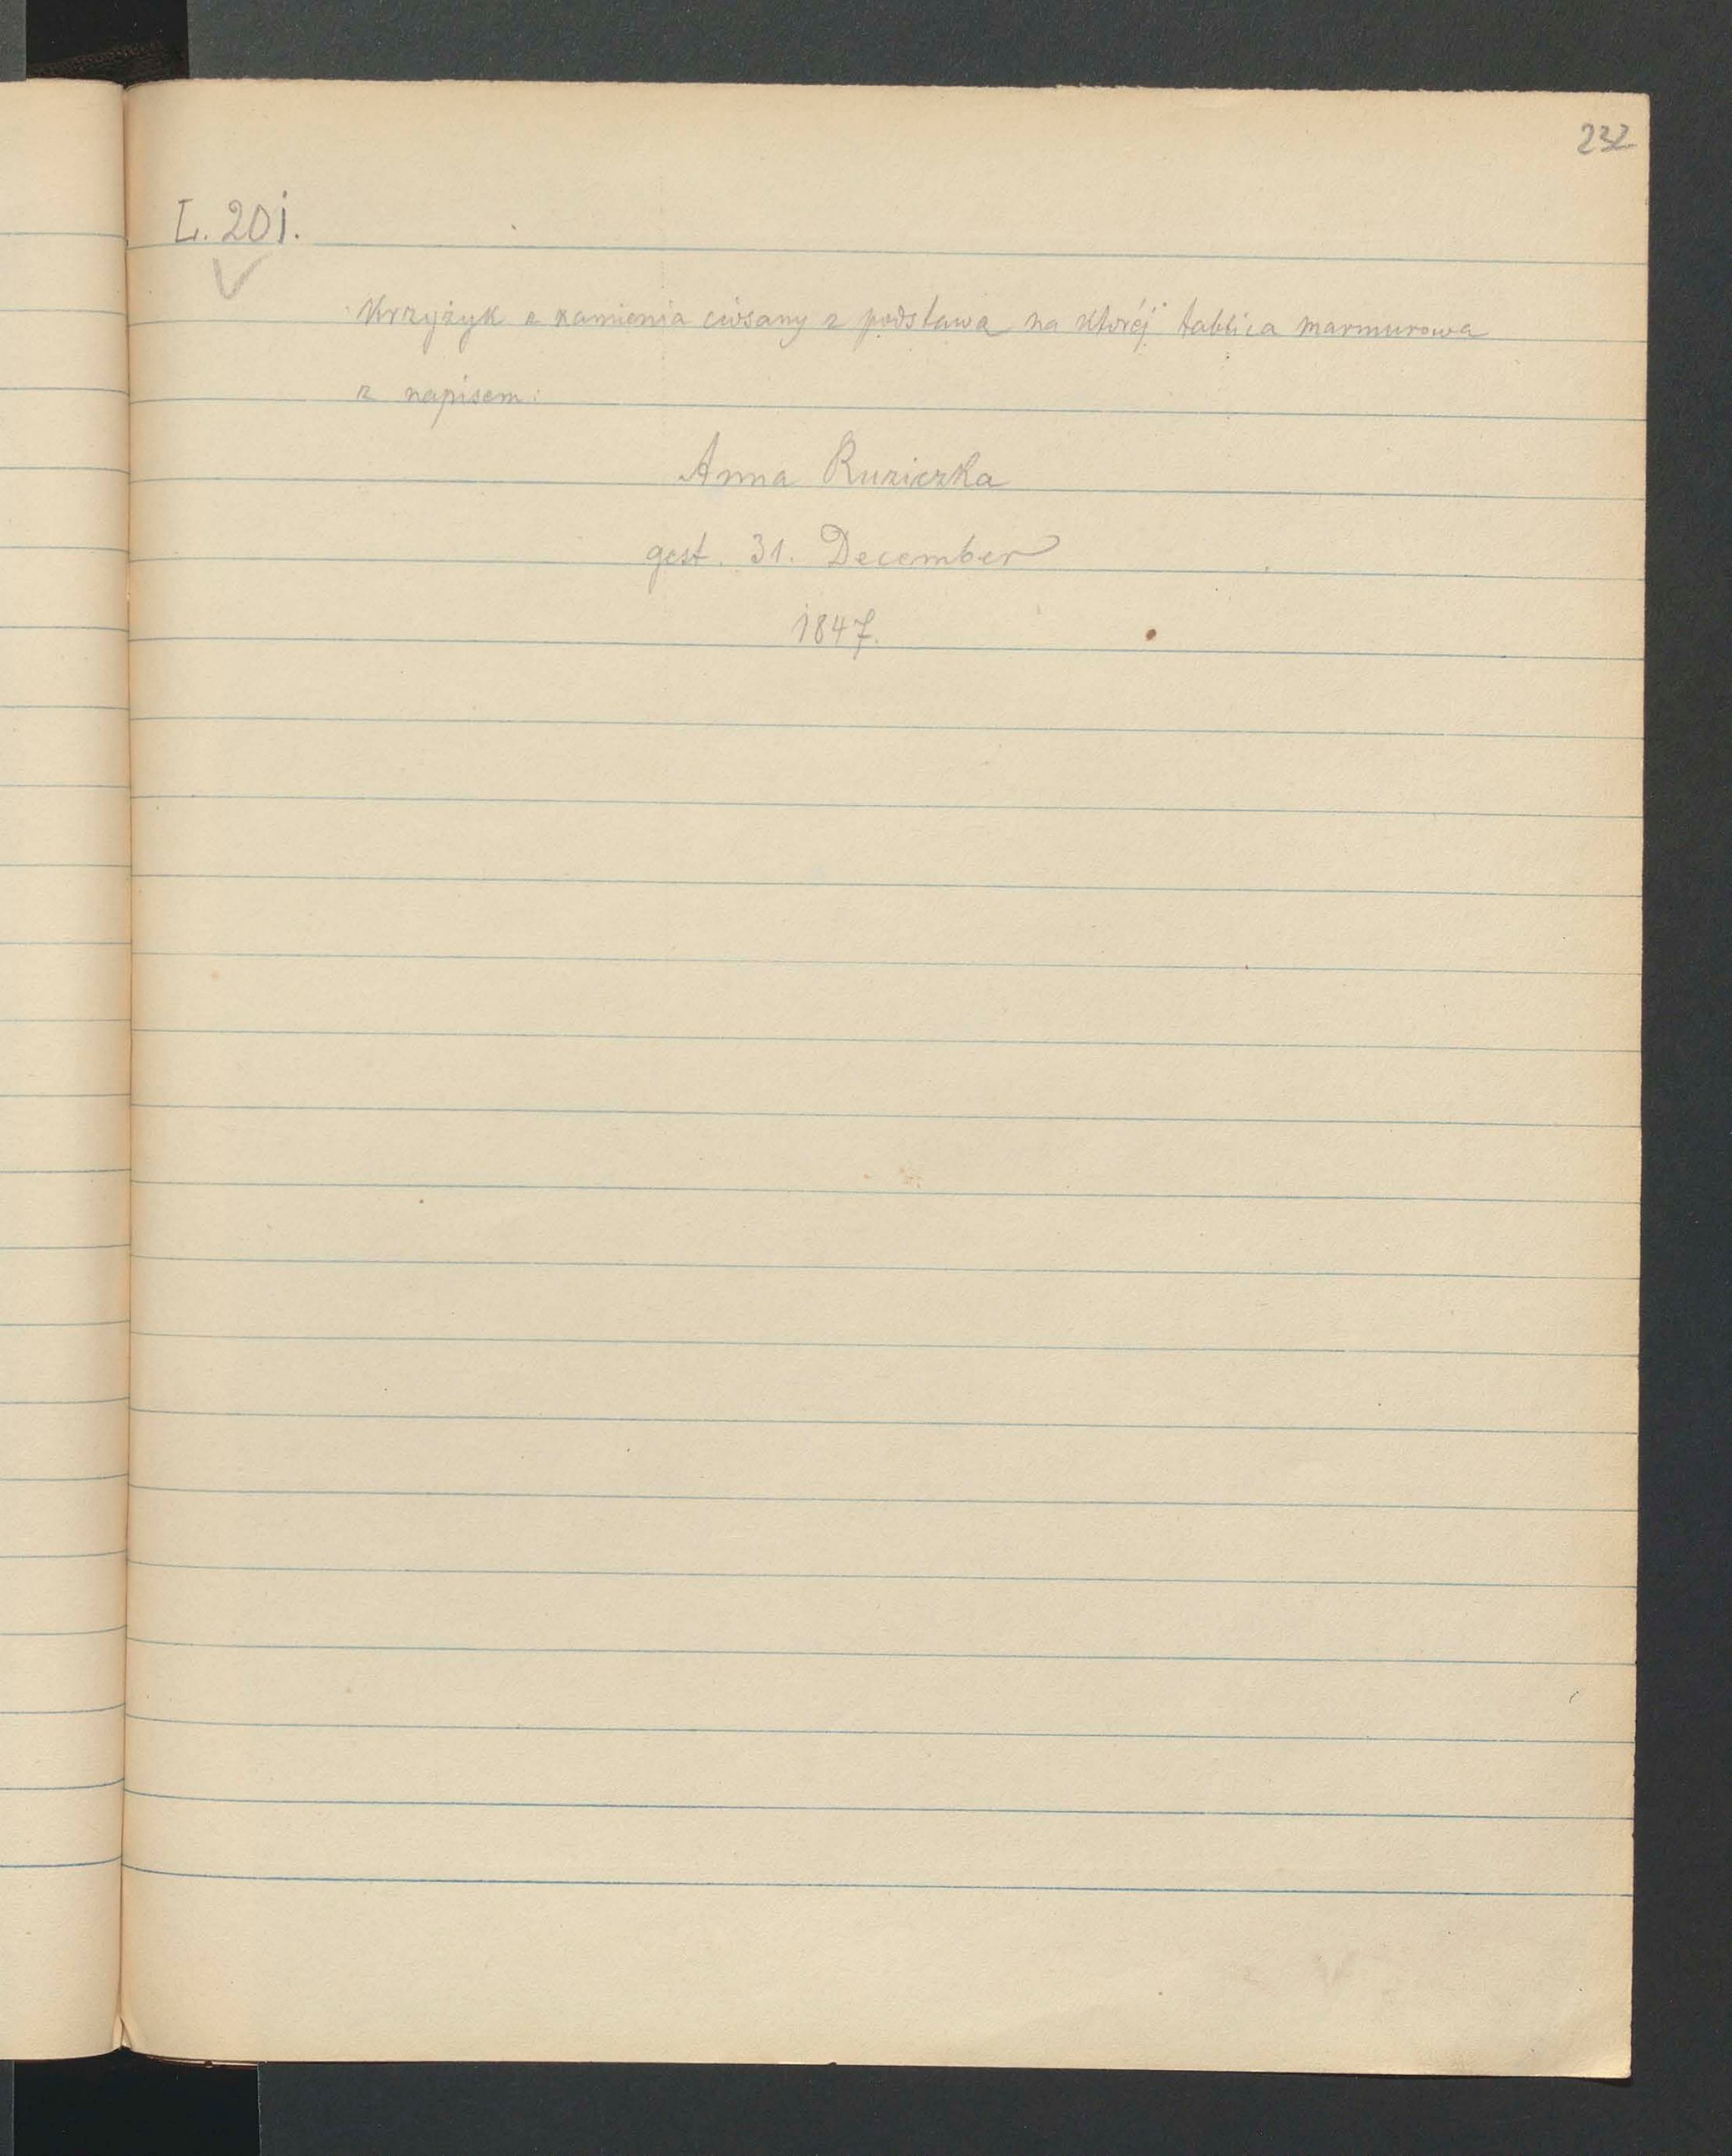 232
L. 201.
Krzyżyk z kamienia ciosany z podstawą na którėj tablica marmurowa
z napisem:
Anna Ruziczka
gest. 31. December
1847.